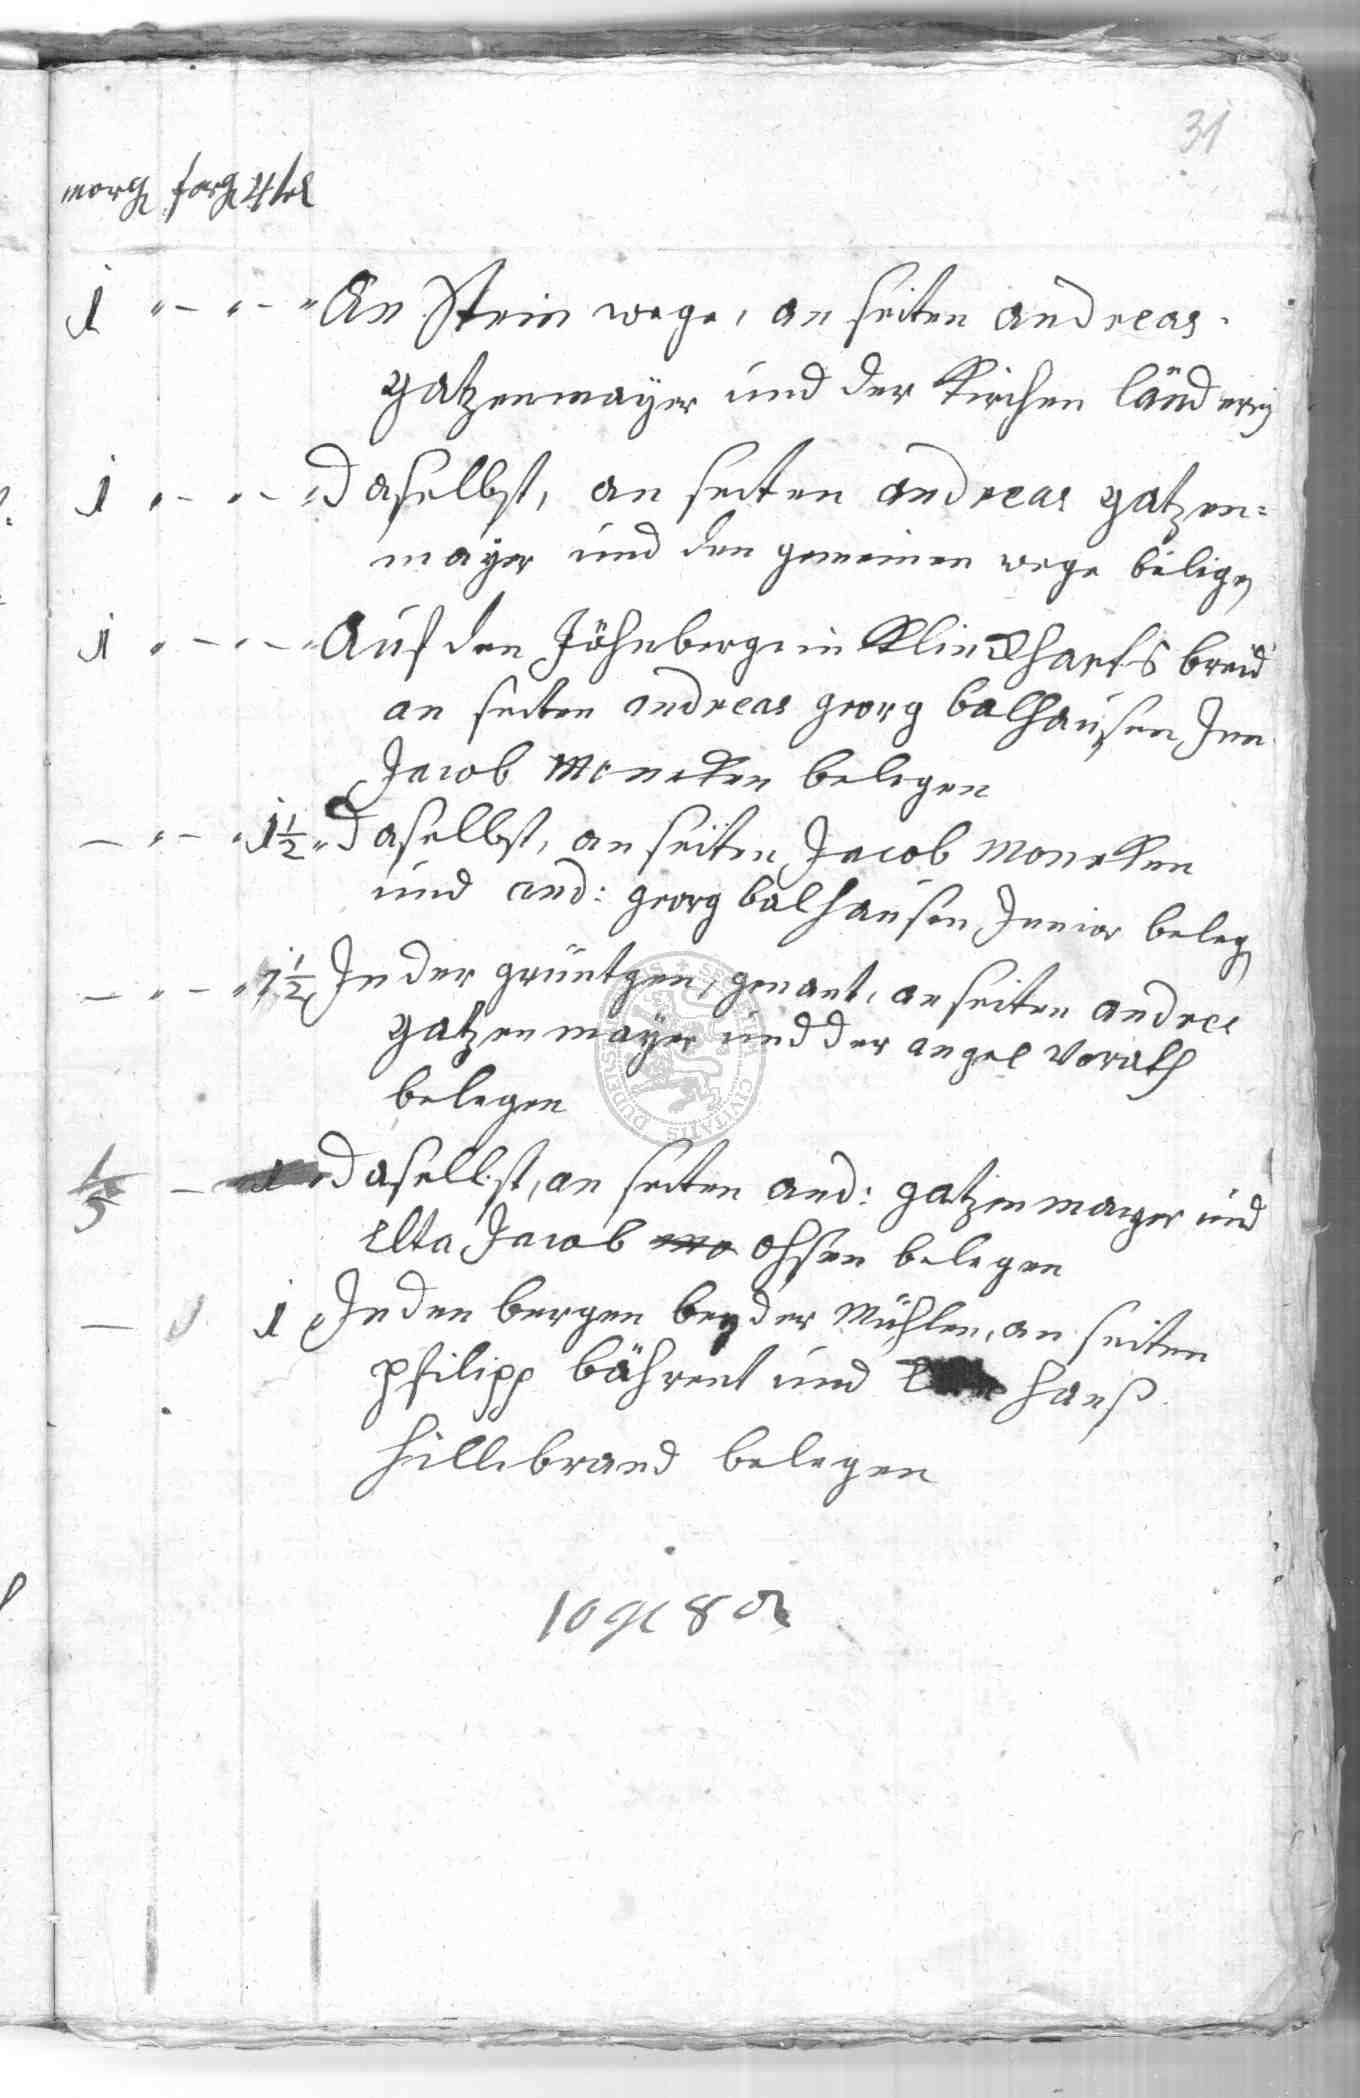 31
morg forg 4tel
1 " - " - " An Stein wege, an seiten Andreas
gatzenmaÿer und der Kirchen länderey
1 " - " - " Daselbst, an seiten Andreas gatzen=
maÿer und den gemeinen wege belige
1 " - " - " Auf den berge in Klinckharts breid
an seiten Andreas georg balhausen Jun
Jacob Monecken belegen
- " - " 1½ " Daselbst, an seiten Jacob Monecken
und And: georg balhausen Junior beleg
- " - " 1½ In der grüntgen, genant, an seiten Andres
gatzenmaÿer und der angel Vorath
belegen
1/5 - 1 " Daselbst, an seiten And: gatzenmaÿer und
Jacob ohsen belegen
- 1 1 In den bergen beÿ der Mühlen, an seiten
Philipp bährent und Hanß
Hillebrand belegen
10 gl 8 d
SECRETUM CIVITATIS DUDERSTADENSIS